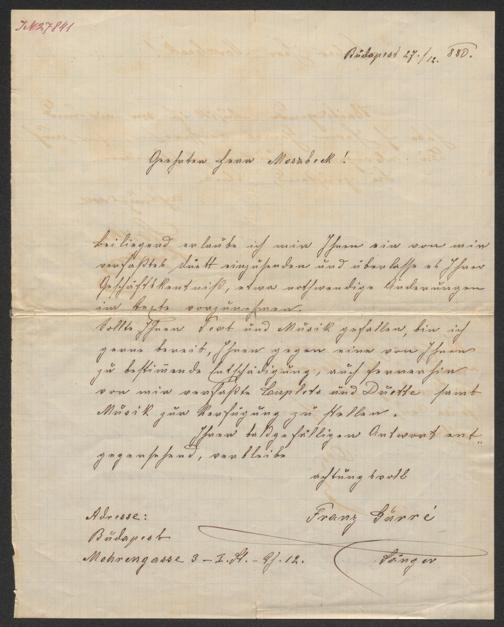 I.N. 27841
Budapest 27./12. 880.
Geehrter Herr Moszbeck!
Beiliegend erlaube ich mir Ihnen ein von mir
verfaßtes Duett einzusenden und überlasse es Ihrer
Geschäftskentniß, etwa nothwendige Änderungen
im Texte vorzunehmen.
Sollte Ihnen Text und Musik gefallen, bin ich
gerne bereit, Ihnen gegen eine von Ihnen
zu bestimende Entschädigung, auch fernerhin
von mir verfaßte Couplets und Duette samt
Musik zur Verfügung zu stellen.
Ihrer baldgefälligen Antwort ent-
gegensehend, verbleibe
achtungsvoll
Franz Gürré
Sänger
Adresse:
Budapest
Mohrengasse 3 - I. St. - Th. 12.